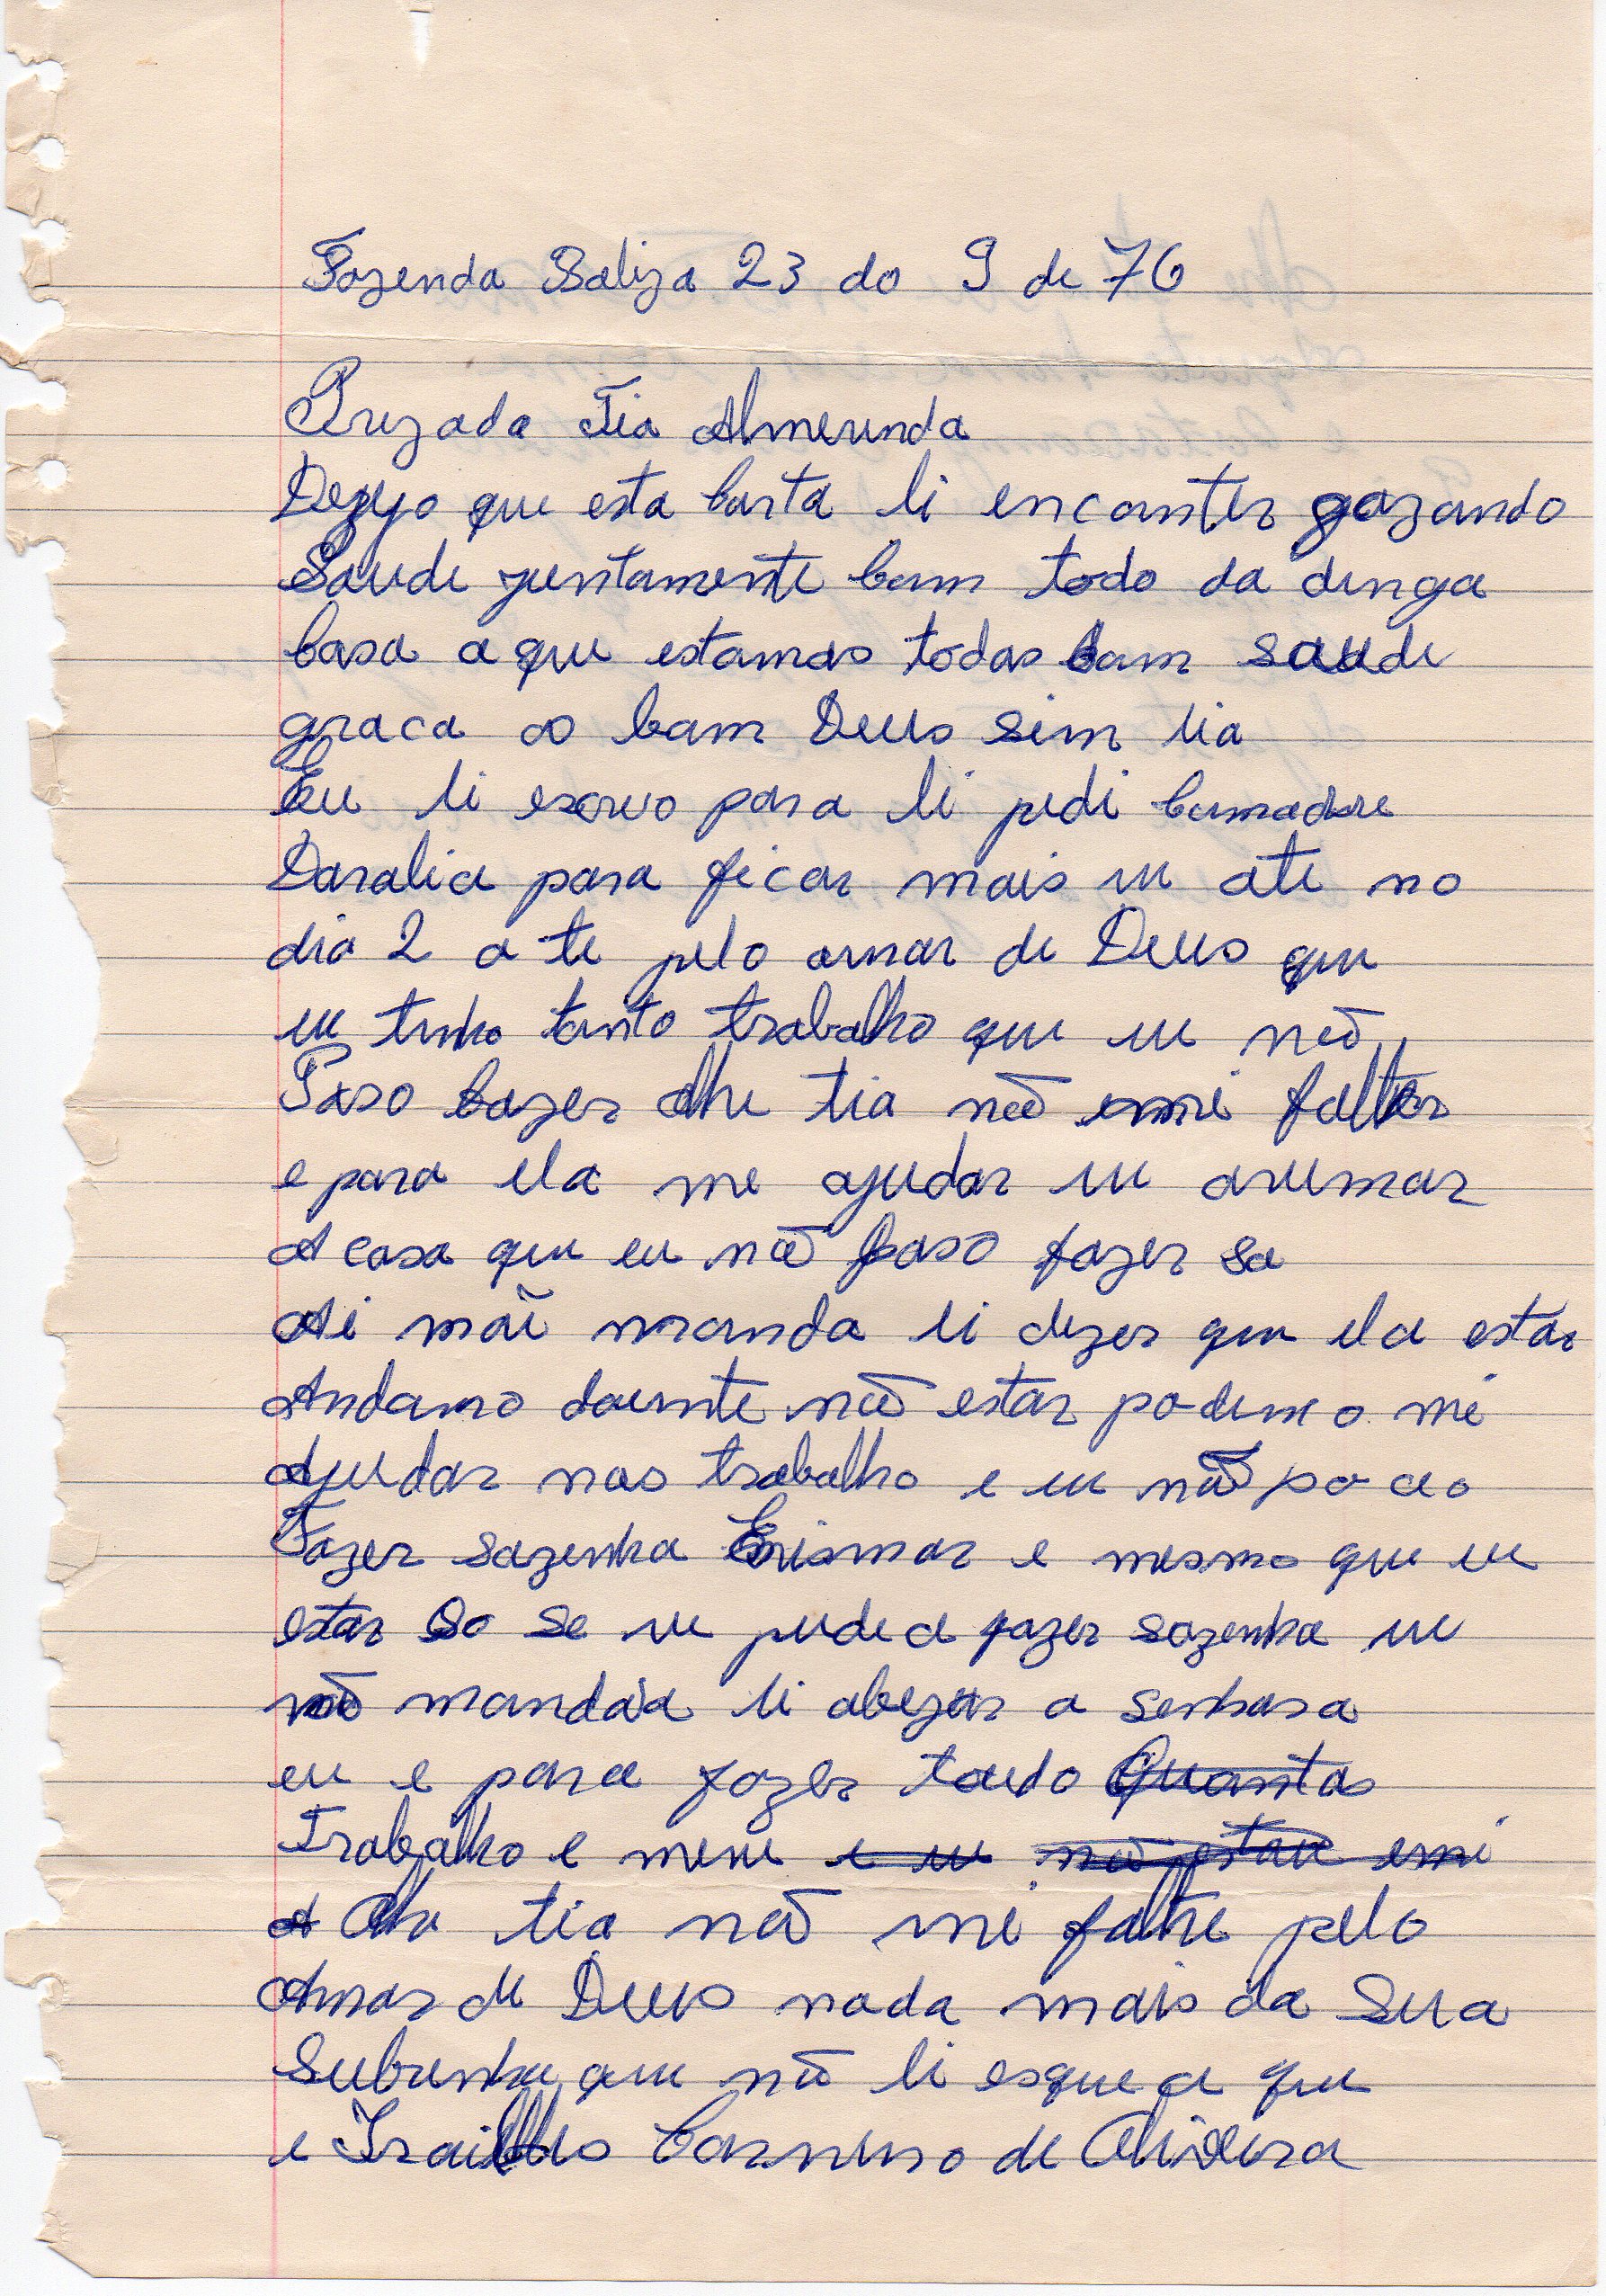 Fazenda Baliza 23 do 9 de 76
Prezada Tia Almerinda
Dezejo que esta Carta li enconter gozando
Saude juntamente Com todo da dinga
Casa a que estamos todos Com saude
graca ao bam Deus sim tia
Eu li escrevo para li pedi Cumadre
Daralia para ficar mais eu ate no
dia 2 a te pelo amar de Deus que
eu tenho tanto trabalho que eu não
Poso fazer olhe tia não mi falter
e para ela me ajudar eu arumar
A casa que eu não poso fazer so
Ai mãi manda li dizer que ela estar
Andamo doente não estar podemo mi
Ajudar nos trabalho e eu não po so
Fazer sozinha Enismar e mesmo que eu
estar So se eu pude a fazer sozinha eu
não mandava li abezar a senhora
eu e para fazer toudo Quantos
Trabalho e meu e eu não estau emi
A Olhe tia não mi falthe pelo
Amar de Deus nada mais da Sua
Subrinha que não li esquea que
e Carneiro de Oliveira